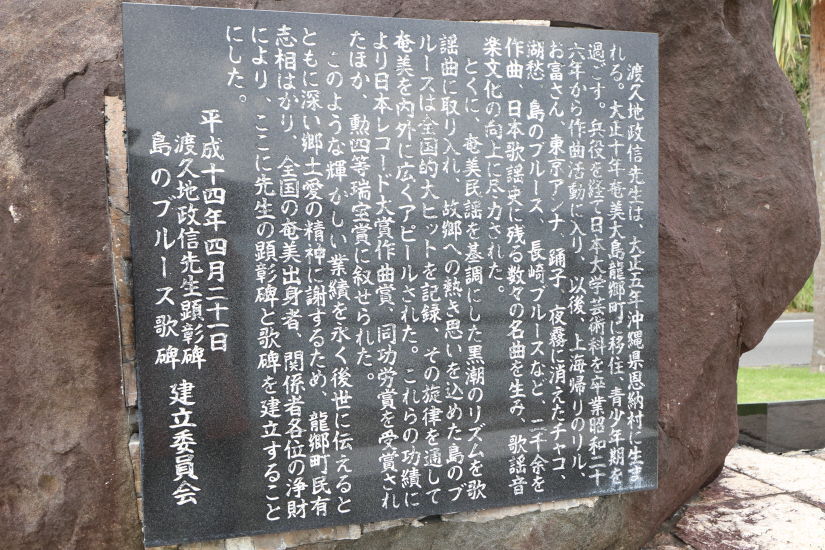 渡久地政信先生は、大正五年沖縄県恩納村に生ま
れる。大正十年奄美大島龍郷町に移住、青少年期を
過ごす。兵役を経て日本大学芸術科を卒業昭和二十
六年から作曲活動に入り、以後、上海帰りのリル、
お富さん、東京アンナ、踊子、夜霧に消えたチャコ、
湖愁、島のブルース、長崎ブルースなど、二千余を
作曲、日本歌謡史に残る数々の名曲を生み、歌謡音
楽文化の向上に尽力された。
とくに、奄美民謡を基調にした黒潮のリズムを歌
謡曲に取り入れ、故郷への熱き思いを込めた島のブ
ルースは全国的大ヒットを記録、その旋律を通して
奄美を内外に広くアピールされた。これらの功績に
より日本レコード大賞作曲賞、同功労賞を受賞され
たほか、勲四等瑞宝賞に叙せられた。
このような輝かしい業績を永く後世に伝えると
ともに深い郷土愛の精神に謝するため、龍郷町民有
志相はかり、全国の奄美出身者、関係者各位の浄財
により、ここに先生の顕彰碑と歌碑を建立すること
にした。
平成十四年四月二十一日
渡久地政信先生顕彰碑
島のブルース歌碑 建立委員会